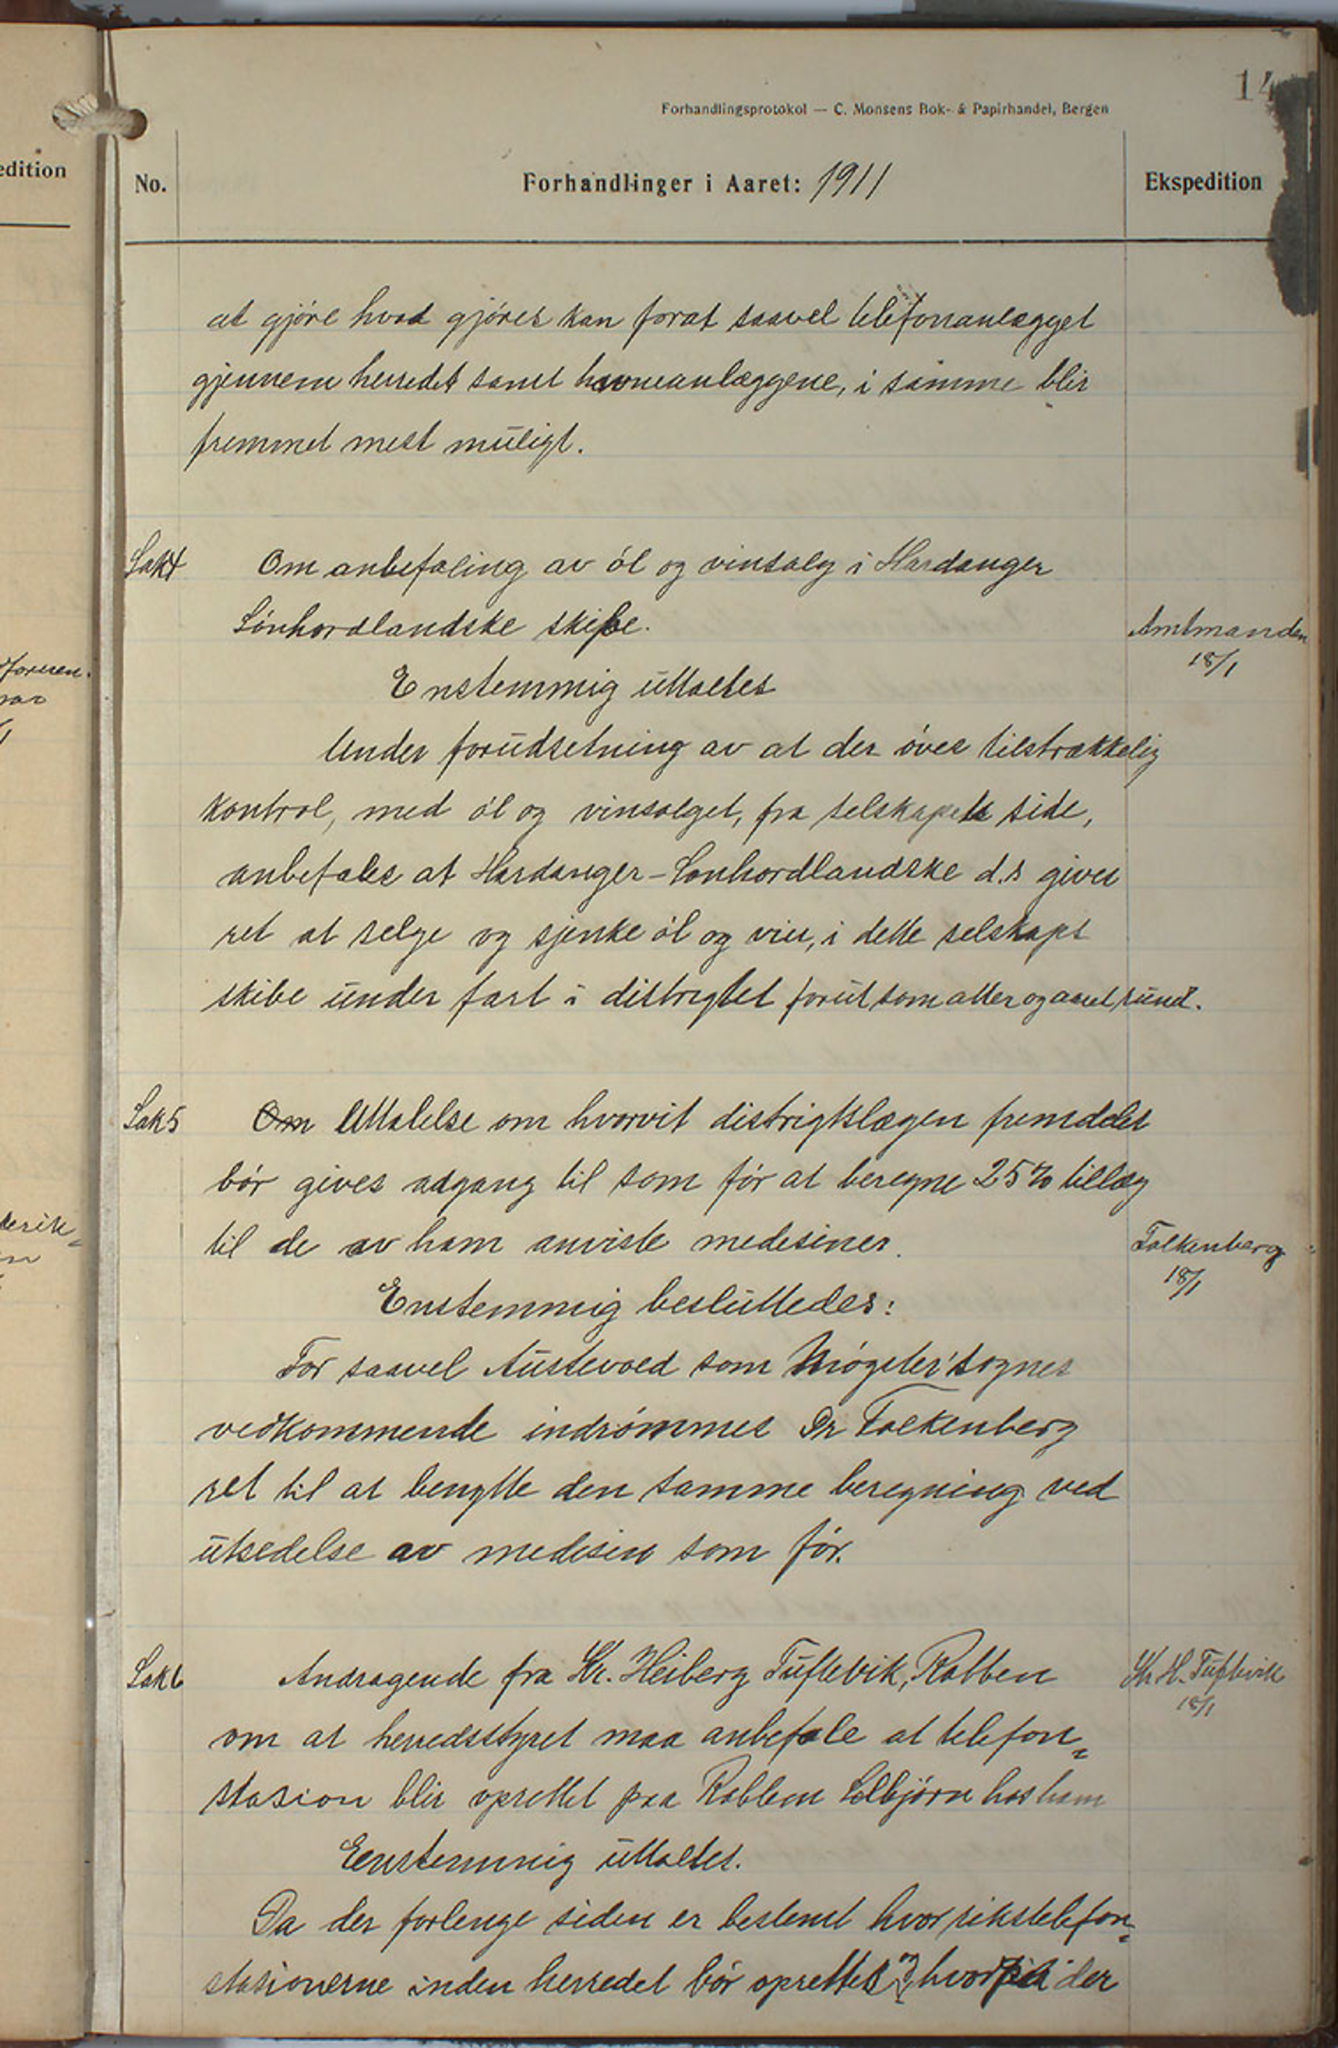 14
Forhandlingsprotokol — C. Monsens Bok- & Papirhandel, Bergen
edition
No.
Forhandlinger i Aaret: 1911
Ekspedition
at gjöre hvad gjöres kan forat saavel telefonanlægget
gjennem herredet samt havneanlæggene, i samme blir
fremmet mest muligt.
Sak 4
Om anbefaling av öl og vinsalg i Hardanger
Sönhordlandske skibe.
Amtmanden
18/1
Enstemmig uttaltes
Under forudsetning av at der öves tilstrækkelig
kontrol, med öl og vinsalget, fra selskapets side,
anbefales at Hardanger-Sonhordlandske d.s gives
ret at selge og sjenke öl og vin, i dette selskaps
skibe under fart i distrigtet forut som atter og aaret rundt.
Sak 5
Om Uttalelse om hvorvit distrigtslægen fremdeles
bör gives adgang til som för at beregne 25% tillæg
til de av ham anviste medesiner.
Falkenberg
18/1
Enstemmig besluttedes:
For saavel Austevold som Møgster sognes
vedkommende indrömmes Dr Falkenberg
ret til at benytte den samme beregning ved
utsedelse av medisin som för.
Sak 6
Andragende fra Kr. Heiberg Tuftevik, Rabben
Kr H. Tuftevik
18/1
om at herredsstyret maa anbefale at telefon=
stasion blir oprettet paa Rabben Selbjörn hos ham
Eenstemmig uttaltes.
Da der forlenge siden er bestemt hvor rikstelefon=
stasionerne inden herredet bör oprettes og hvor der